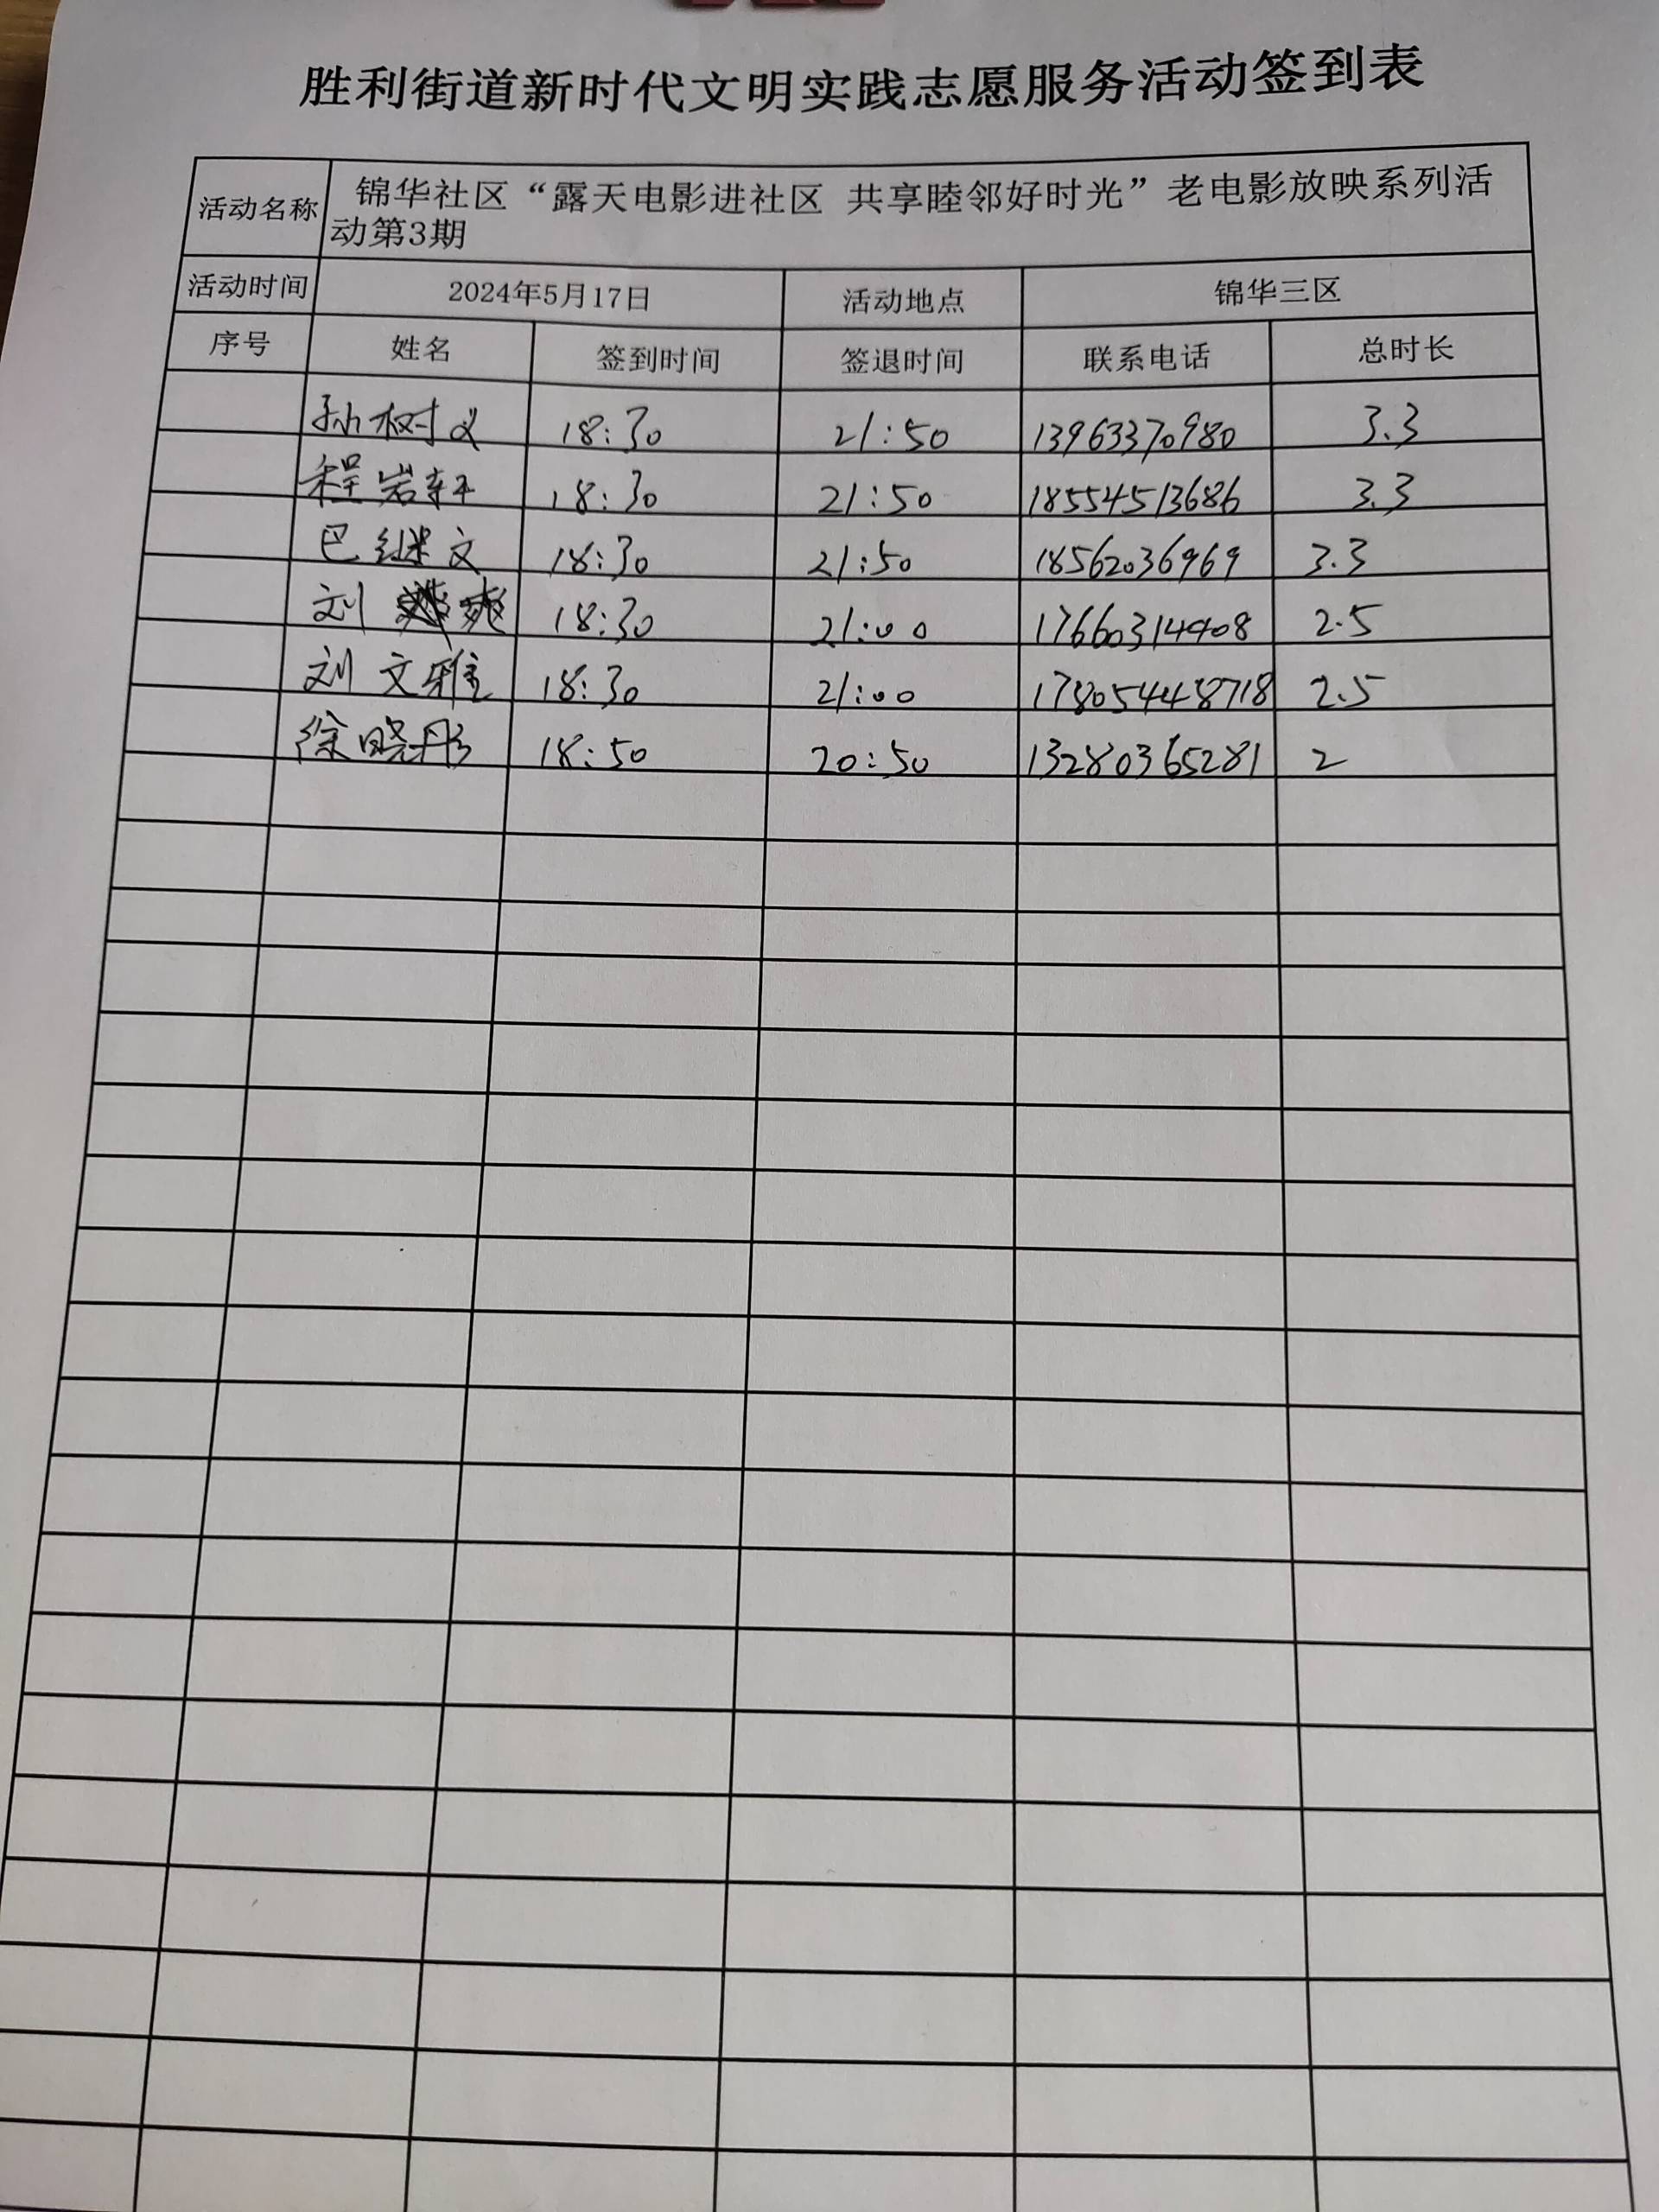 胜利街道新时代文明实践志愿服务活动签到表
活动名称 锦华社区“露天电影进社区 共享睦邻好时光”老电影放映系列活
动第3期
活动时间 2024年5月17日 活动地点 锦华三区
序号 姓名 签到时间 签退时间 联系电话 总时长
孙树义 18:30 21:50 13963370980 3.3
程岩轩 18:30 21:50 18554513686 3.3
巴继文 18:30 21:50 18562036969 3.3
刘 爽 18:30 21:00 17660314408 2.5
刘文雅 18:30 21:00 178054448718 2.5
徐晓彤 18:50 20:50 13280365281 2